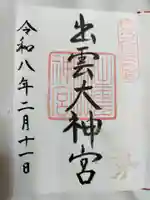 出雲大神宮
令和八年二月十一日